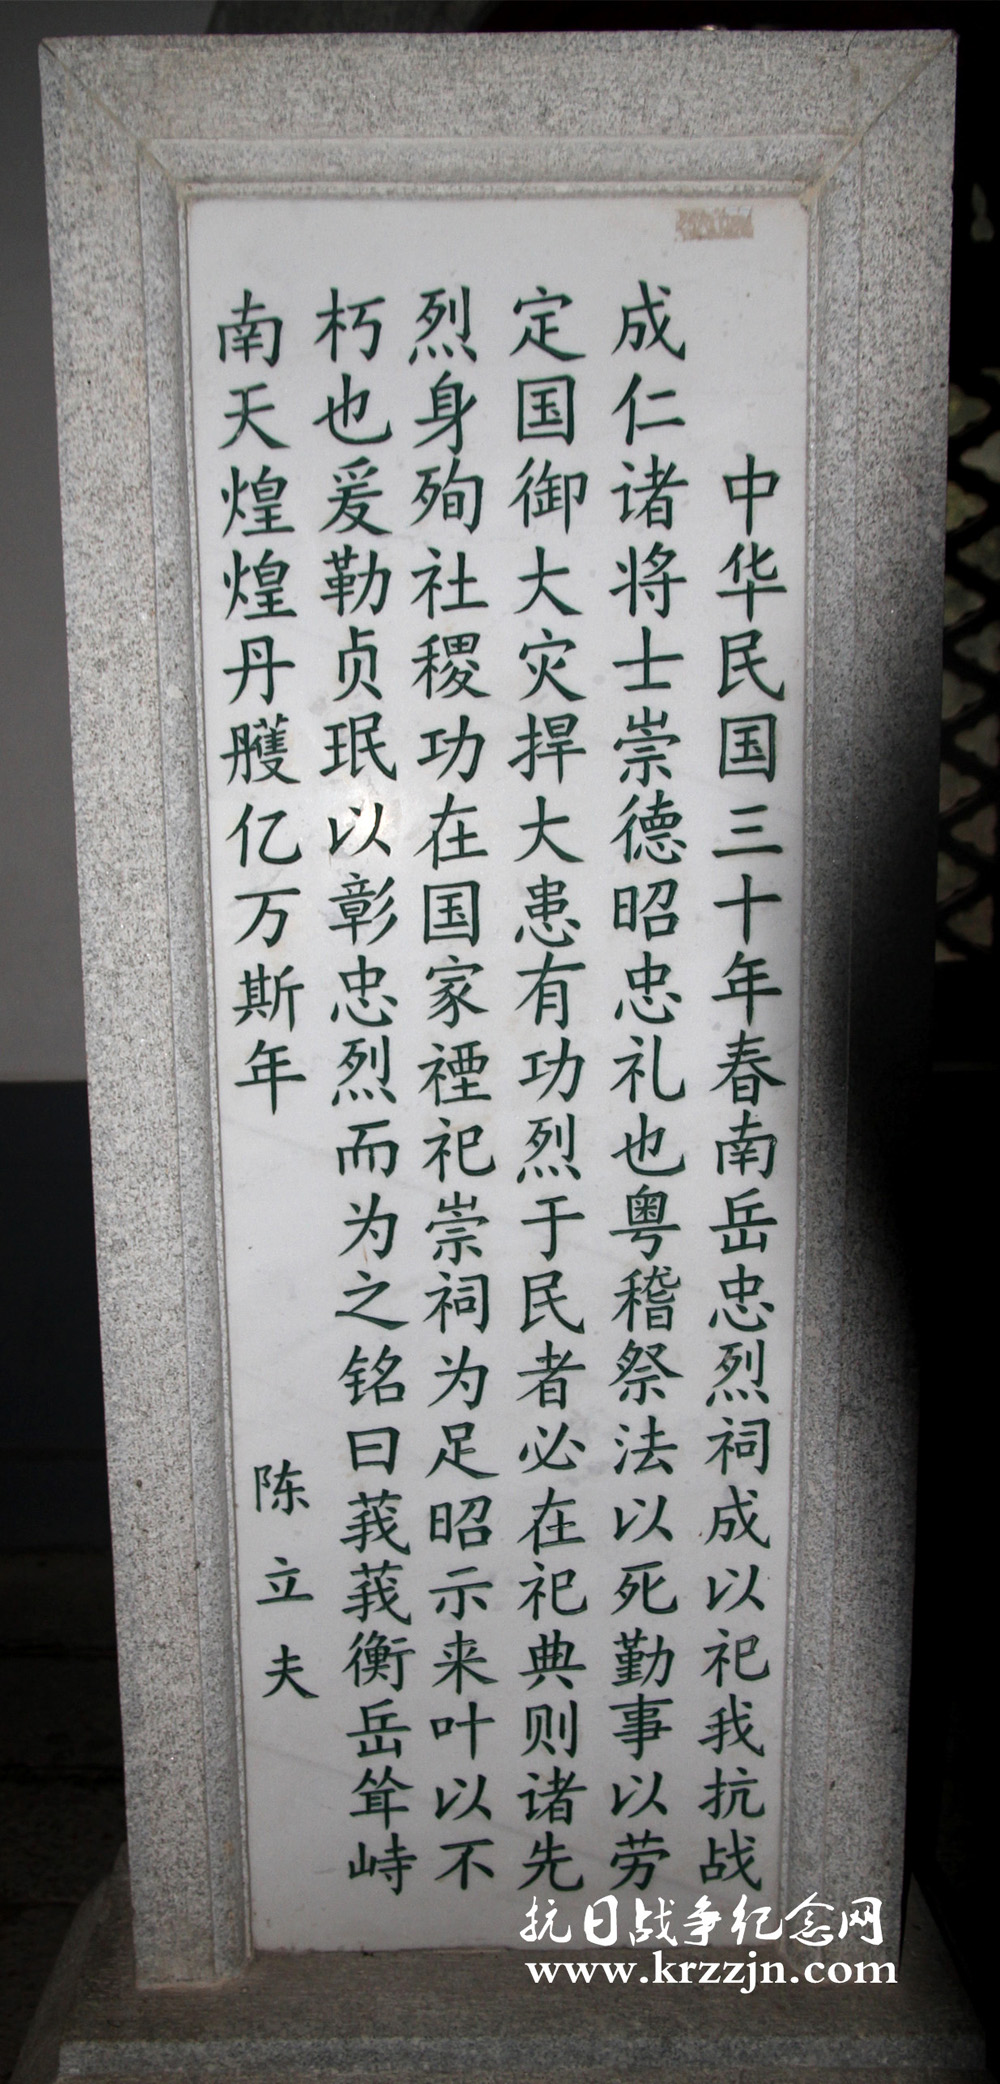 中华民国三十年春南岳忠烈祠成以祀我抗战
成仁诸将士崇德昭忠礼也粤稽祭法以死勤事以劳
定国御大灾捍大患有功烈于民者必在祀典则诸先
烈身殉社稷功在国家禋祀崇祠为足昭示来叶以不
朽也爰勒贞珉以彰忠烈而为之铭曰莪莪衡岳耸峙
南天煌煌丹臒亿万斯年
陈立夫
抗日战争纪念网
www.krzzjn.com